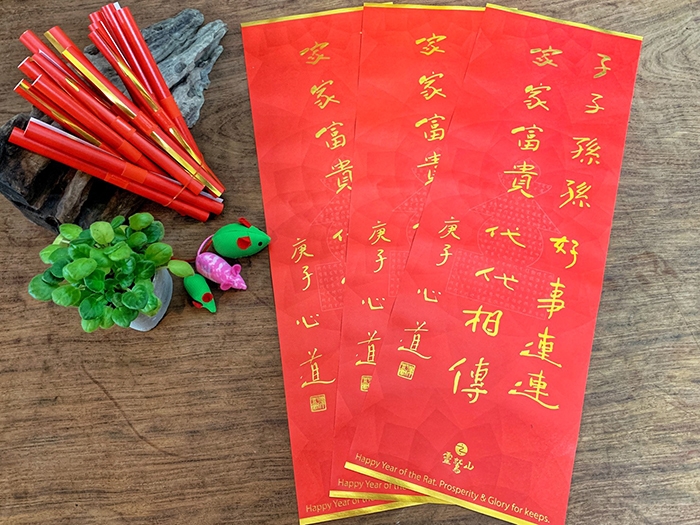 子子孫孫好事連連
家家富貴代代相傳
庚子 心道
靈鷲山
Happy Year of the Rat. Prosperity & Glory for keeps.
家家富貴
庚子 心道
Happy Year of the
家家富貴代
庚子 心道
Happy Year of the